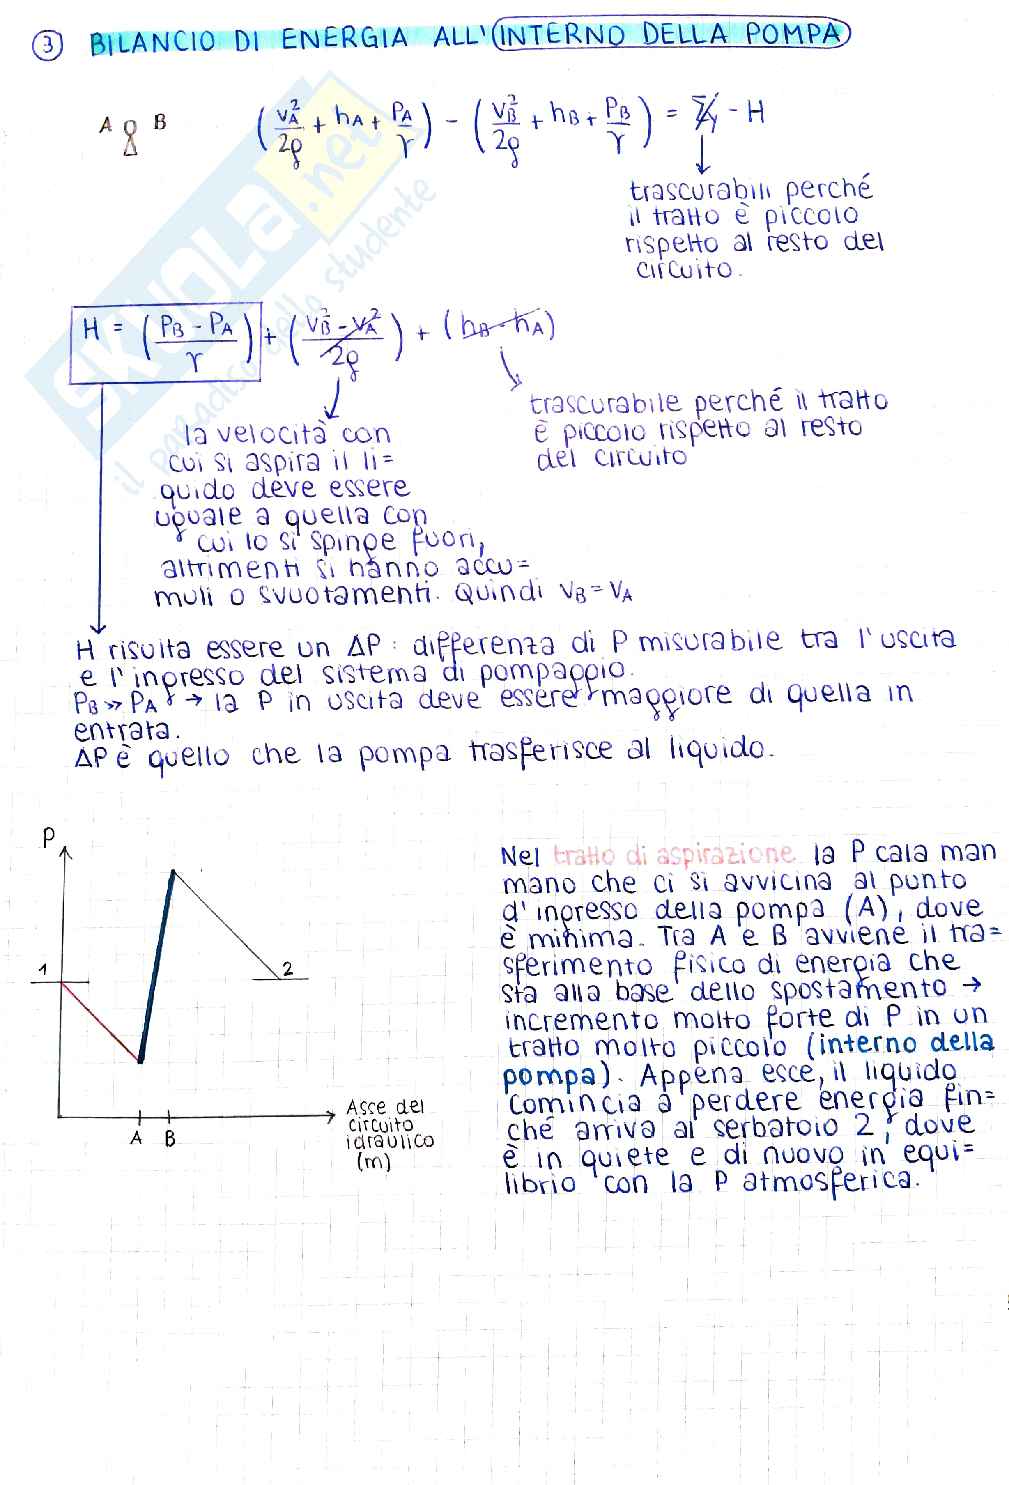 3 BILANCIO DI ENERGIA ALL'INTERNO DELLA POMPA
A B (vA²/2g + hA + PA/γ) - (vB²/2g + hB + PB/γ) = Y - H
trascurabili perché
il tratto è piccolo
rispetto al resto del
circuito.
H = (PB - PA/γ) + (vB² - vA²/2g) + (hB - hA)
trascurabile perché il tratto
è piccolo rispetto al resto
del circuito
la velocità con
cui si aspira il li=
quido deve essere
uguale a quella con
cui lo si spinge fuori,
altrimenti si hanno accu=
muli o svuotamenti. Quindi vB = vA
H risulta essere un ΔP: differenza di P misurabile tra l'uscita
e l'ingresso del sistema di pompaggio.
PB >> PA → la P in uscita deve essere maggiore di quella in
entrata.
ΔP è quello che la pompa trasferisce al liquido.
P
1
2
A B
Asse del
circuito
idraulico
(m)
Nel tratto di aspirazione la P cala man
mano che ci si avvicina al punto
d'ingresso della pompa (A), dove
è minima. Tra A e B avviene il tra=
sferimento fisico di energia che
sta alla base dello spostamento →
incremento molto forte di P in un
tratto molto piccolo (interno della
pompa). Appena esce, il liquido
comincia a perdere energia fin=
ché arriva al serbatoio 2, dove
è in quiete e di nuovo in equi=
librio con la P atmosferica.
SKUOLA.net
il paradiso dello studente